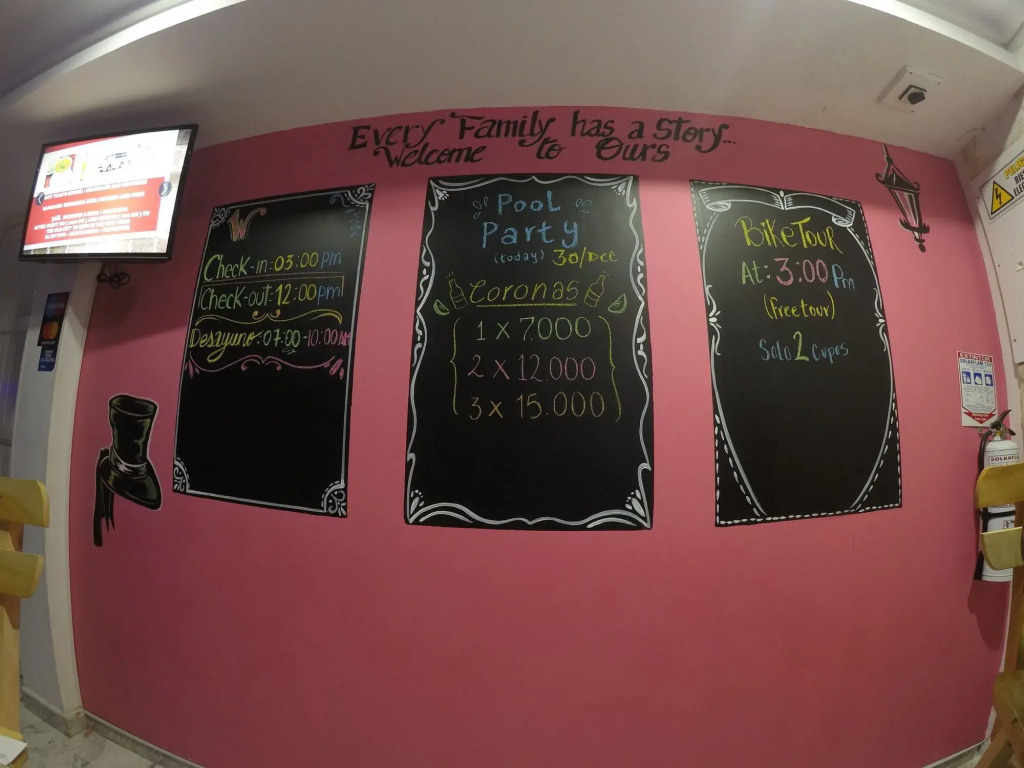 Every Family has a story...
Welcome to Ours
W
Check-in: 03:00 pm
Check-out: 12:00 pm
Desayuno: 07:00 - 10:00 AM
Pool
Party
(today) 30/Dec
Coronas
1 x 7.000
2 x 12.000
3 x 15.000
Bike Tour
At: 3:00 Pm
(free tour)
Solo 2 Cupos
EXTINTOR
SOLKAFLAM